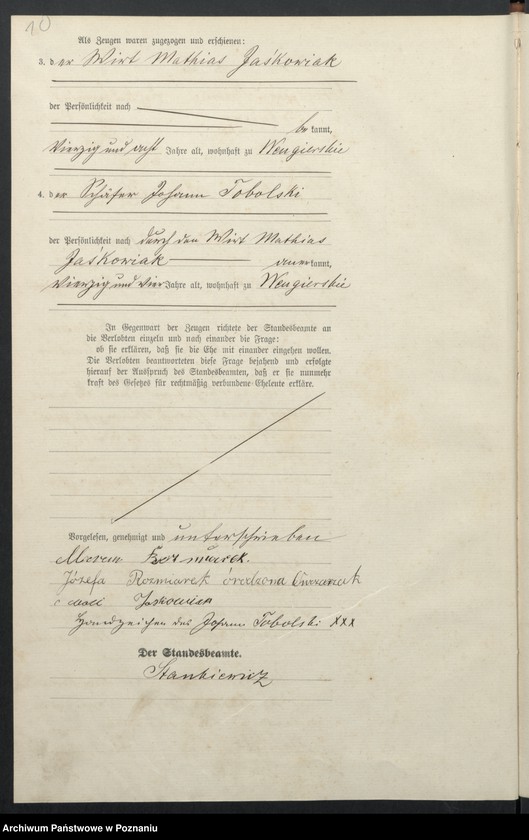 10
Als Zeugen waren zugezogen und erschienen:
3. der Wirt Mathias Jaśkowiak
der Persönlichkeit nach
be kannt,
Vierzig und acht Jahre alt, wohnhaft zu Wengierskie
4. der Schäfer Johann Tobolski
der Persönlichkeit nach durch den Wirt Mathias
Jaśkowiak anerkannt,
Vierzig und vier Jahre alt, wohnhaft zu Wengierskie
In Gegenwart der Zeugen richtete der Standesbeamte an
die Verlobten einzeln und nach einander die Frage:
ob sie erklären, daß sie die Ehe mit einander eingehen wollen.
Die Verlobten beantworteten diese Frage bejahend und erfolgte
hierauf der Ausspruch des Standesbeamten, daß er sie nunmehr
kraft des Gesetzes für rechtmäßig verbundene Eheleute erkläre.
Vorgelesen, genehmigt und unterschrieben
Józefa Rozmiarek
Jaskowiak
Handzeichen des Johann Tobolski XXX
Der Standesbeamte.
Stankiewitz
Archiwum Państwowe w Poznaniu